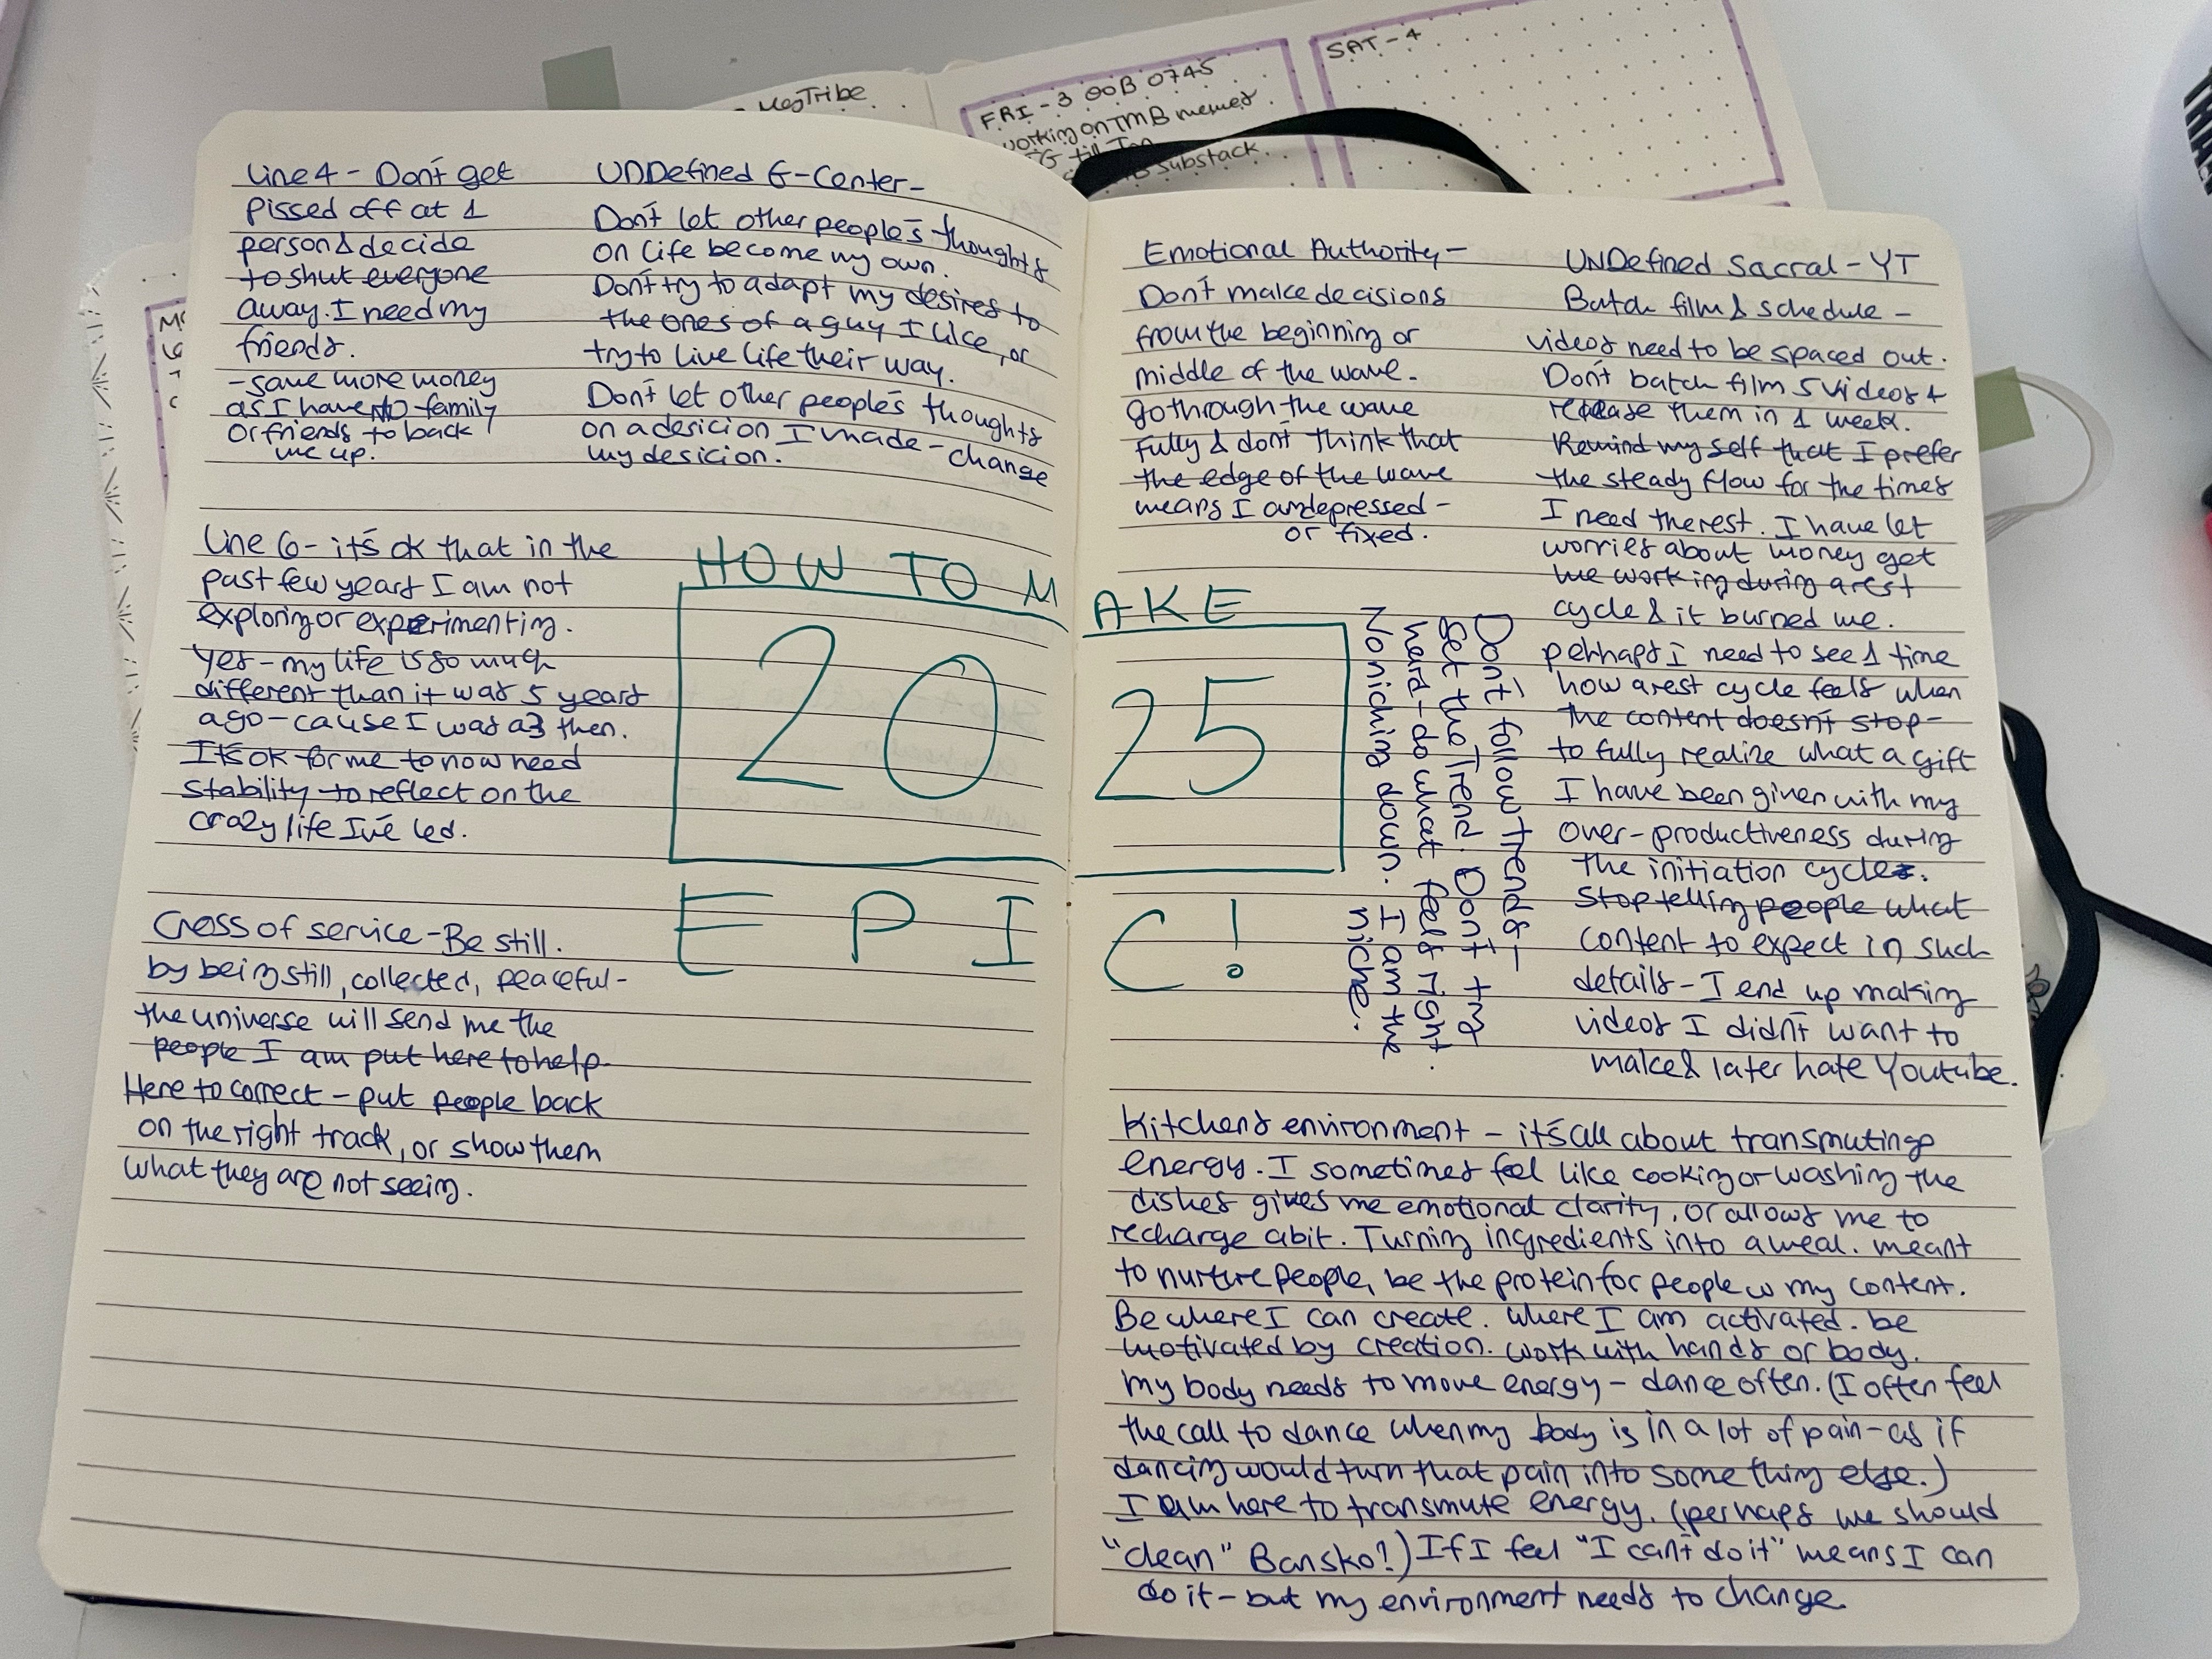 MegTribe
FRI - 3 OOB 0745
working on TMB memes
Substack.
SAT - 4
Line 4 - Don't get
pissed off at 1
person & decide
to shut everyone
away. I need my
friends.
- save more money
as I have no family
or friends to back
me up.
UNDefined G-Center-
Don't let other people's thoughts
on life become my own.
Don't try to adapt my desires to
the ones of a guy I like, or
try to live life their way.
Don't let other people's thoughts
on a desicion I made - change
my desicion.
Line 6 - it's ok that in the
past few years I am not
exploring or experimenting.
Yes - my life is so much
different than it was 5 years
ago - cause I was a 3 then.
It's ok for me to now need
stability to reflect on the
crazy life I've led.
Cross of service - Be still.
by being still, collected, peaceful -
the universe will send me the
people I am put here to help.
Here to correct - put people back
on the right track, or show them
what they are not seeing.
HOW TO MAKE
2025
EPIC!
Emotional Authority -
Don't make decisions
from the beginning or
middle of the wave.
go through the wave
fully & don't think that
the edge of the wave
means I am depressed -
or fixed.
UNDefined Sacral - YT
Batch film & schedule -
videos need to be spaced out.
Don't batch film 5 videos +
release them in 1 week.
Remind my self that I prefer
the steady flow for the times
I need the rest. I have let
worries about money get
me working during a rest
cycle & it burned me.
perhaps I need to see 1 time
how a rest cycle feels when
the content doesn't stop -
to fully realize what a gift
I have been given with my
over-productiveness during
the initiation cycle.
Stop telling people what
content to expect in such
details - I end up making
videos I didn't want to
make & later hate Youtube.
Don't follow trends -
Set the Trend. Don't try
hard - do what feels right.
No niching down. I am the
niche.
Kitchens environment - it's all about transmuting
energy. I sometimes feel like cooking or washing the
dishes gives me emotional clarity, or allows me to
recharge abit. Turning ingredients into a meal. meant
to nurture people, be the protein for people w my content.
Be where I can create. where I am activated. be
motivated by creation. work with hands or body.
my body needs to move energy - dance often. (I often feel
the call to dance when my body is in a lot of pain - as if
dancing would turn that pain into something else.)
I am here to transmute energy. (perhaps we should
"clean" Bansko!) If I feel "I can't do it" means I can
do it - but my environment needs to change.